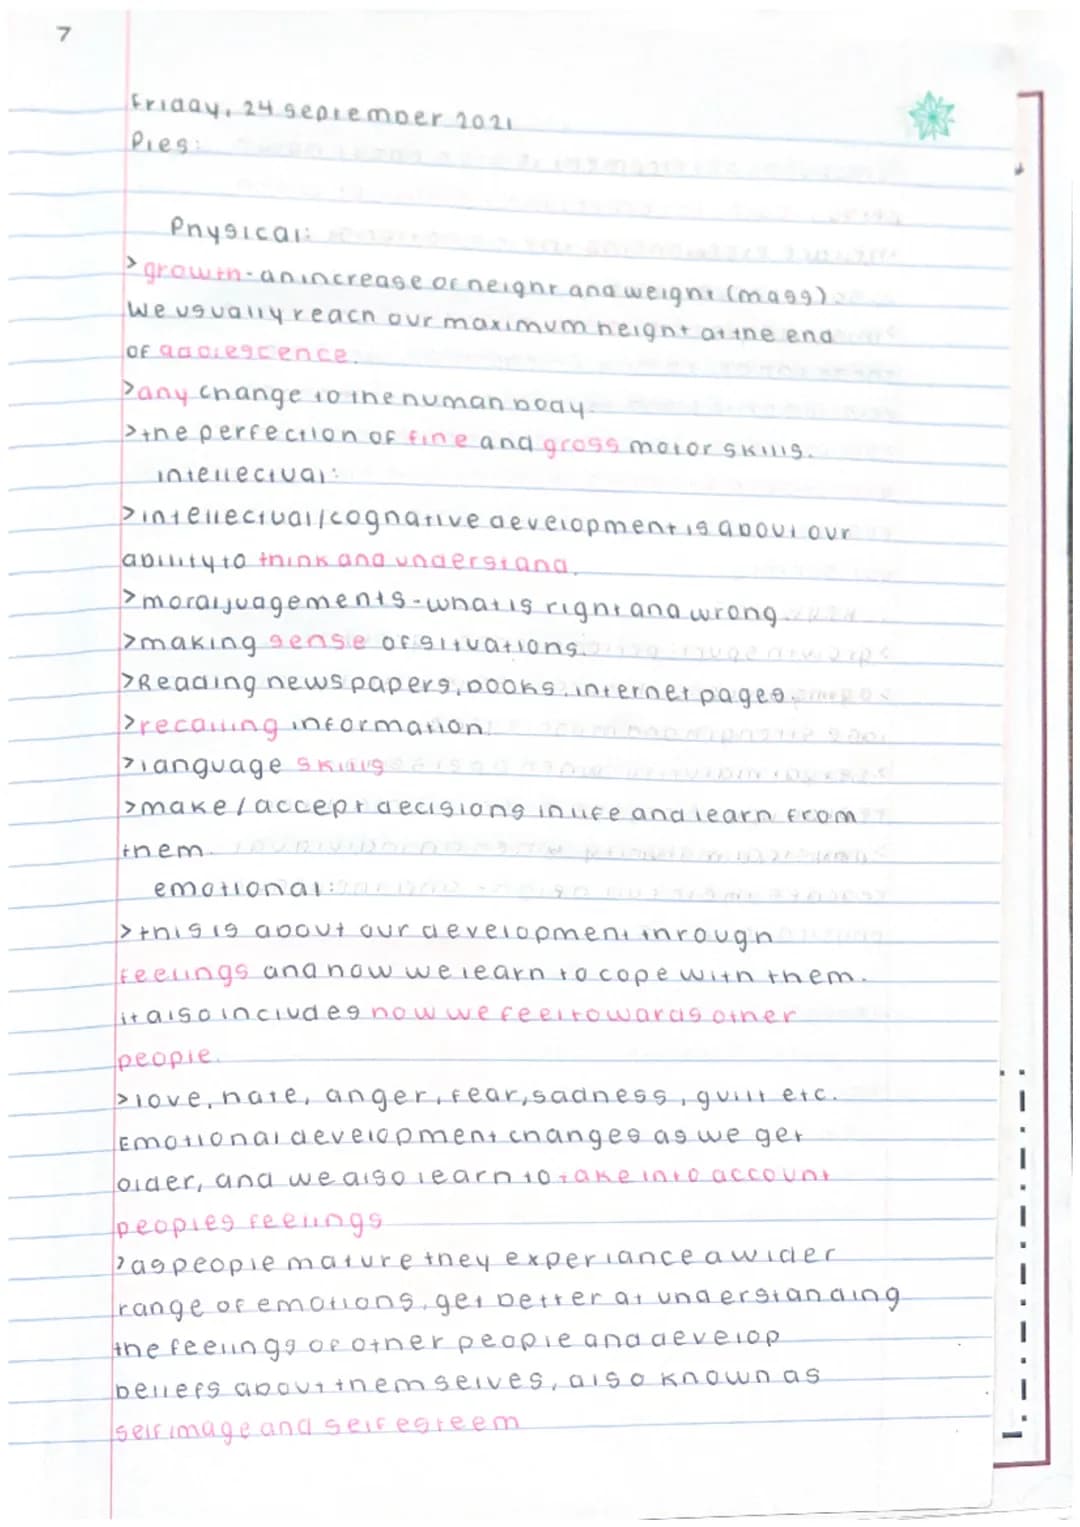 7
Friday, 24 september 2021
Pies:
Physical:
> growth - an increase of height and weight (mass)
We usually reach our maximum height at the end
of adolescence.
>any change to the human body.
>the perfection of fine and gross motor skills.
intellectual:
>intellectual/cognative development is about our
ability to think and understand.
>moral judgements - what is right and wrong.
>making sense of situations.
>Reading newspapers, books, internet pages.
>recalling information.
>language skills
>make/accept decisions in life and learn from
them.
emotional:
>this is about our development through
feelings and how we learn to cope with them.
it also includes how we feel towards other
people.
>love, hate, anger, fear, sadness, guilt etc.
Emotional development changes as we get
older, and we also learn to take into account
peoples feelings
>as people mature they experiance a wider
range of emotions, get better at understanding
the feelings of other people and develop
beliefs about themselves, also known as
self image and self esteem